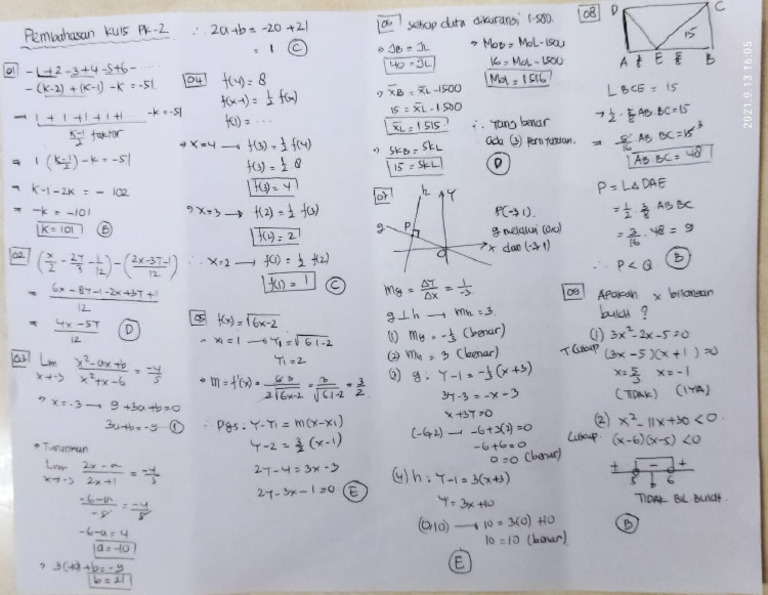 Pembahasan Kuis PK-2
01 -1+2-3+4-5+6-...
-(k-2)+(k-1)-k = -51
→ 1+1+1+1+... -k = -51
k-1/2 faktor
⇒ 1(k-1/2) - k = -51
⇒ k-1-2k = -102
⇒ -k = -101
k = 101 (B)
02 (x/2 - 2y/3 - 1/12) - (2x-3y-1/12)
= 6x-8y-1-2x+3y+1/12
= 4x-5y/12 (D)
03 Lim x→-3 x²-ax+b/x²+x-6 = -4/5
→ x=-3 → 9+3a+b=0
3a+b=-9 (1)
• Turunan
Lim x→-3 2x-a/2x+1 = -4/5
-6-a/-5 = -4/5
-6-a = 4
a=-10
→ 3(-10)+b=-9
b = 21
∴ 2a+b = -20+21
= 1 (C)
04 f(4) = 8
f(x-1) = 1/2 f(x)
f(1) = ...
→ x=4 → f(3) = 1/2 f(4)
f(3) = 1/2 8
f(3) = 4
→ x=3 → f(2) = 1/2 f(3)
f(2) = 2
∴ x=2 → f(1) = 1/2 f(2)
f(1) = 1 (C)
05 f(x) = √6x-2
∴ x1=1 → y1 = √6.1-2
y1 = 2
• m = f'(x) = 6/2√6x-2 = 3/√6.1-2 = 3/2
∴ Pgs: y-y1 = m(x-x1)
y-2 = 3/2 (x-1)
2y-4 = 3x-3
2y-3x-1=0 (E)
06 setiap data dikurangi 1.500.
→ JB = JL
40 = JL
→ x̄B = x̄L - 1500
15 = x̄L - 1500
x̄L = 1515
→ SkB = SkL
15 = SkL
→ MoB = MoL-1500
16 = MoL-1500
MoL = 1516
∴ Yang benar
ada (3) pernyataan.
(D)
07
h y
g P
O x
P(-3,1).
g melalui (0,0)
dan (-3,1)
mg = Δy/Δx = 1/-3
g⊥h → mh = 3.
(1) mg = -1/3 (benar)
(2) mh = 3 (benar)
(3) g: y-1 = -1/3 (x+3)
3y-3 = -x-3
x+3y=0
(-6,2) → -6+3(2)=0
-6+6=0
0=0 (benar)
(4) h: y-1 = 3(x+3)
y = 3x+10
(0,10) → 10 = 3(0)+10
10 = 10 (benar)
(E)
08 D C
15
A E B
L BCE = 15
→ 1/2 . 5/8 AB.BC = 15
⇒ 5/16 AB.BC = 15 3
AB.BC = 48
P = LΔDAE
= 1/2 . 3/8 AB BC
= 3/16 . 48 = 9
∴ P < Q (B)
09 Apakah x bilangan
bulat ?
(1) 3x²-2x-5=0
(3x-5)(x+1)=0
x=5/3 x=-1
(TIDAK) (IYA)
(2) x²-11x+30 < 0
(x-6)(x-5) < 0
+ - +
5 6
TIDAK BIL. BULAT.
(B)
2021.9.13 16:05